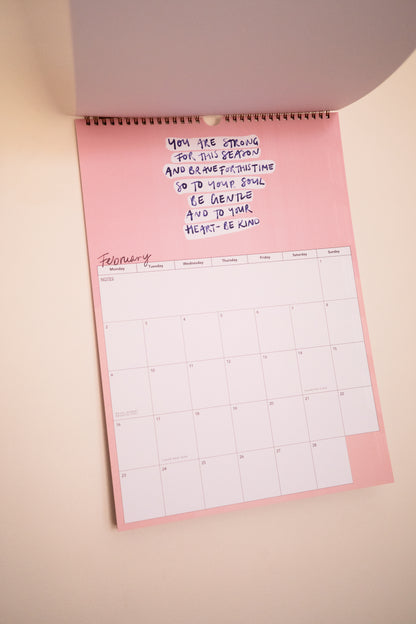 YOU ARE STRONG
FOR THIS SEASON
AND BRAVE FOR THIS TIME
SO TO YOUR SOUL
BE GENTLE
AND TO YOUR
HEART- BE KIND
February
Monday Tuesday Wednesday Thursday Friday Saturday Sunday
NOTES 1
2 3 4 5 6 7 8
9 10 11 12 13 14 15
16 17 18 19 20 21 22
23 24 25 26 27 28